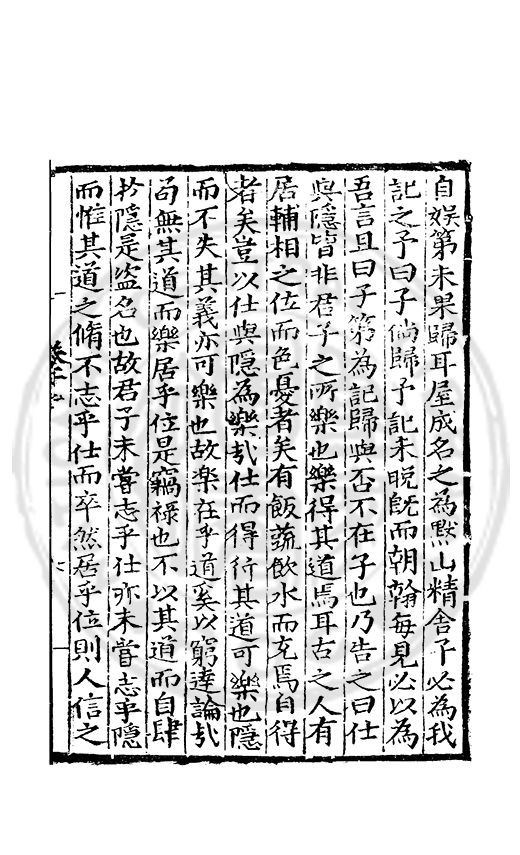 自娛第未果歸耳屋成名之為默山精舍子必為我
記之予曰子倘歸予記未晚旣而朝翰每見必以為
吾言且曰子第為記歸與否不在子也乃告之曰仕
與隱皆非君子之所樂也樂得其道焉耳古之人有
居輔相之位而色憂者矣有飯蔬飲水而充焉自得
者矣豈以仕與隱為樂㢤仕而得行其道可樂也隱
而不失其義亦可樂也故樂在乎道奚以窮達論㢤
苟無其道而樂居乎位是竊祿也不以其道而自肆
於隱是盜名也故君子未嘗志乎仕亦未嘗志乎隱
而惟其道之脩不志乎仕而卒然居乎位則人信之